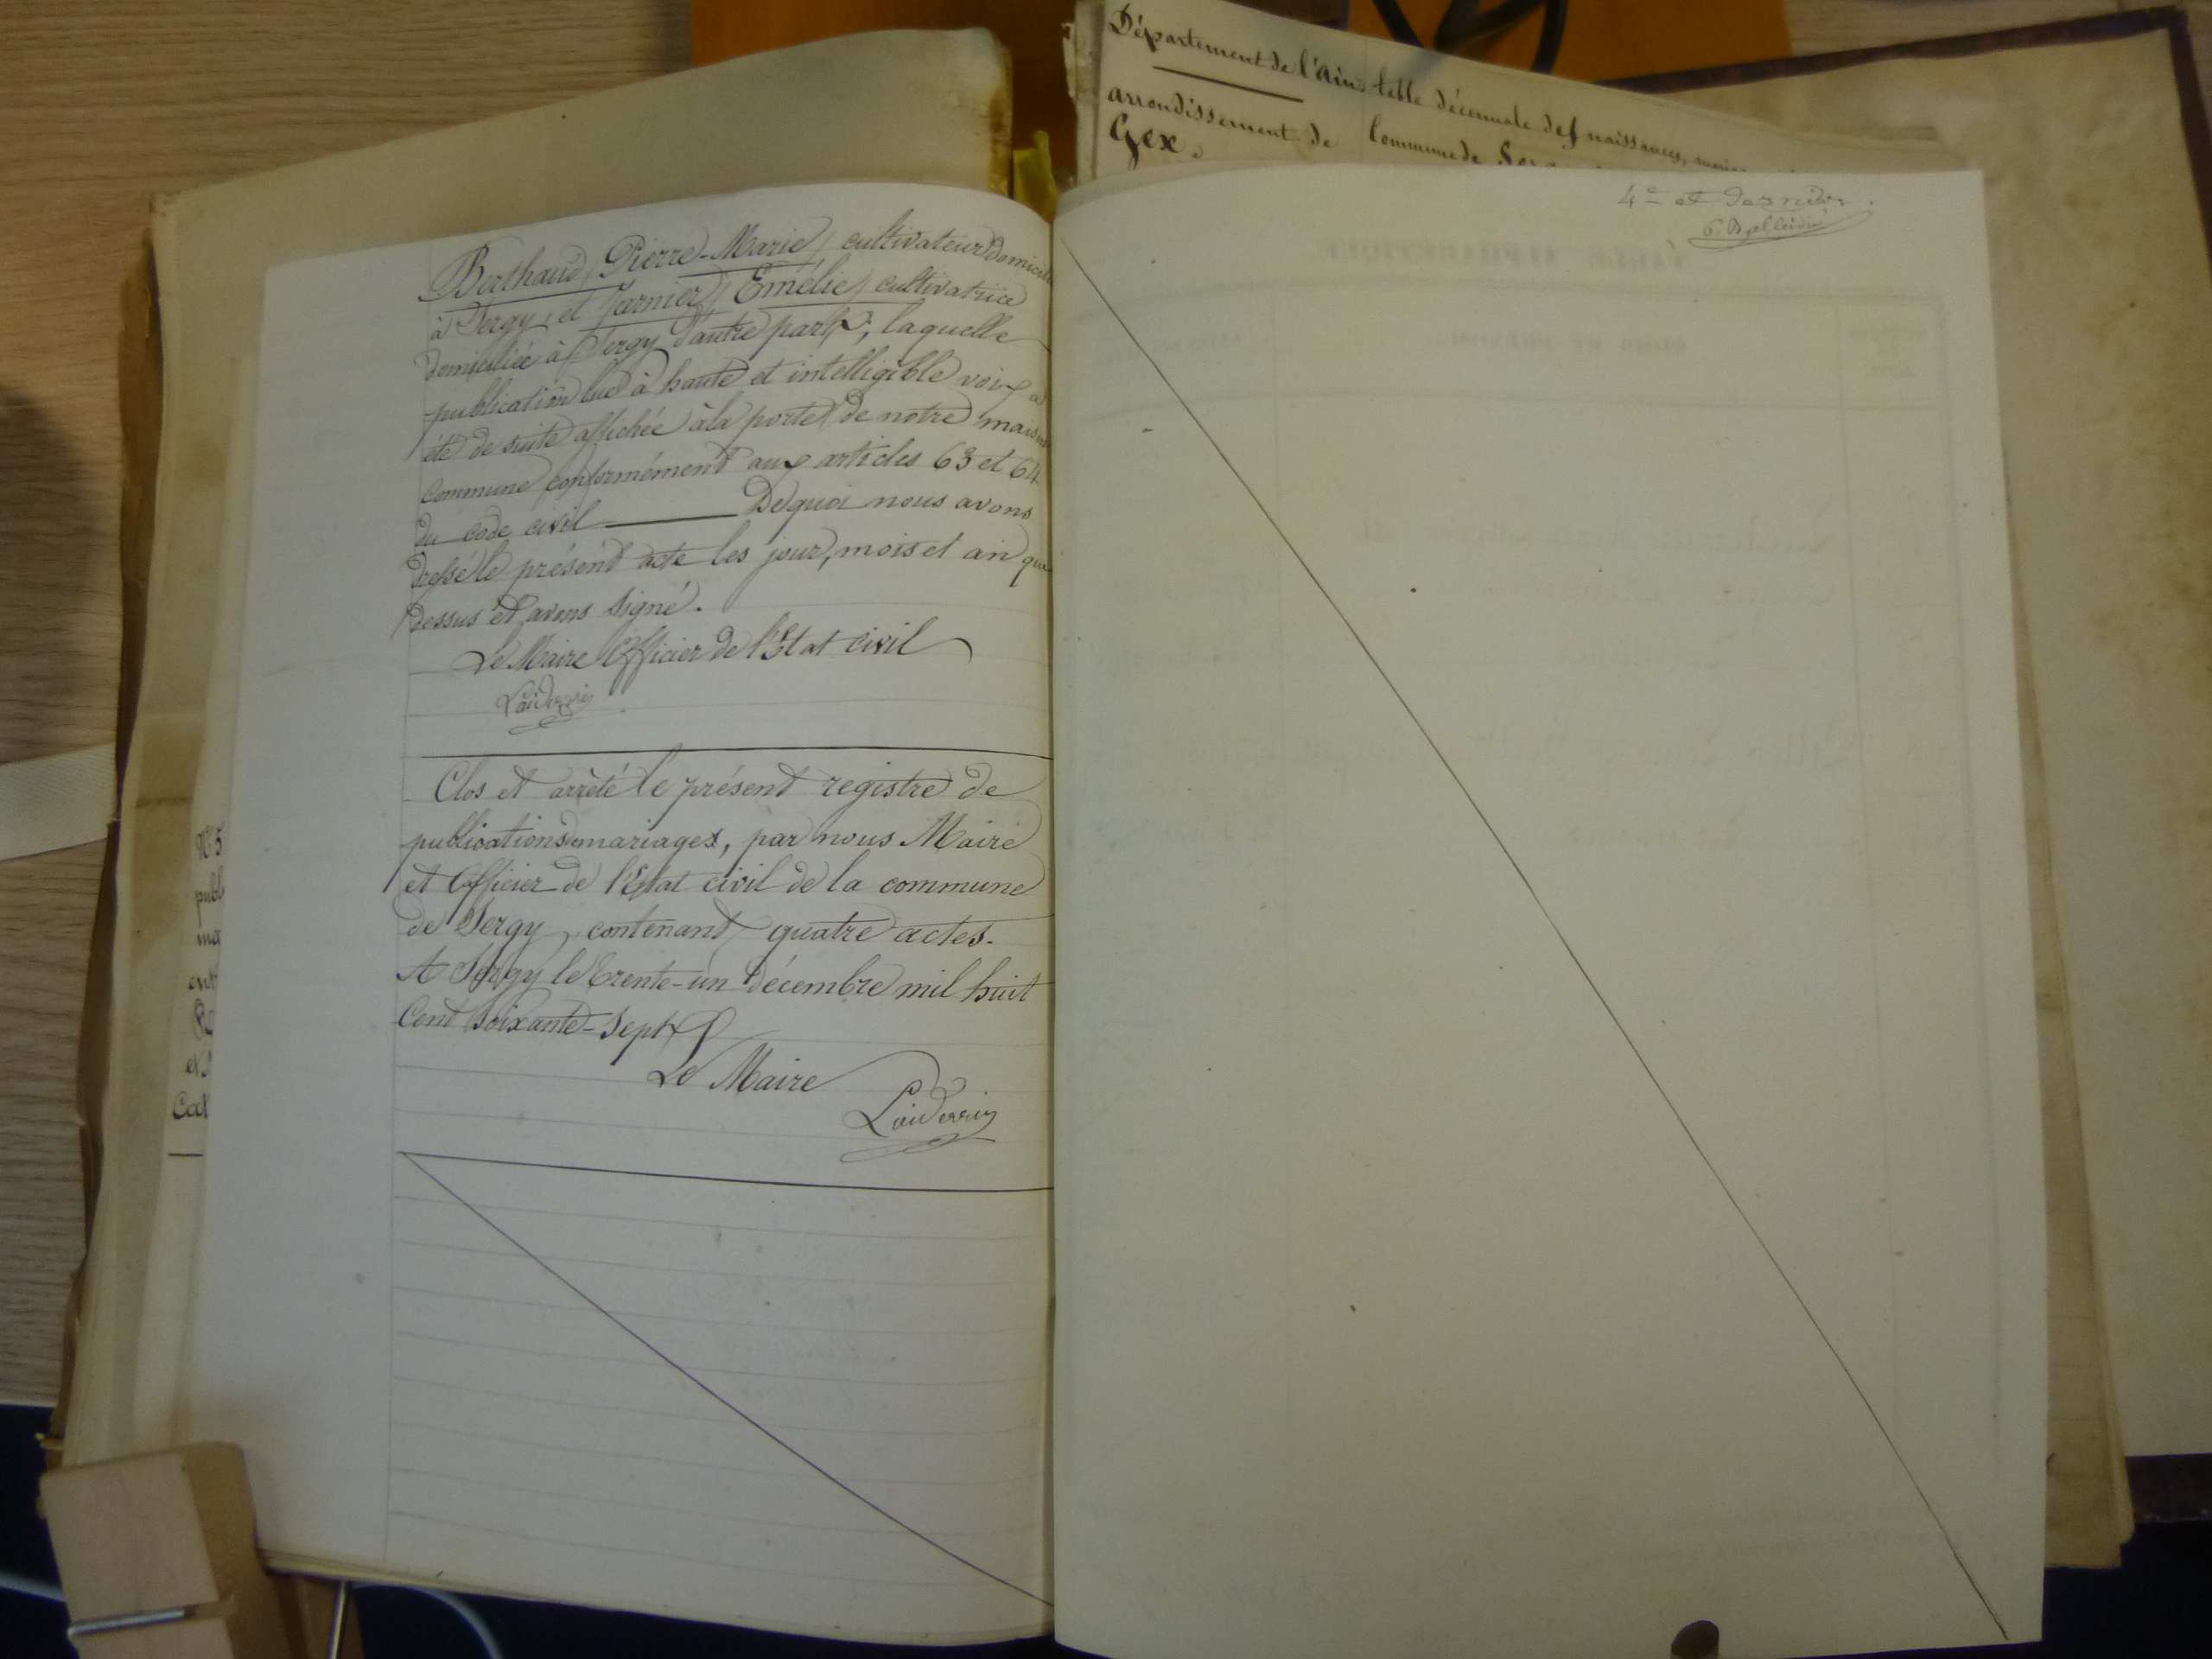 Département de l'Ain. table décennale des naissances,
arrondissement de
Commune de
Gex.
4e et dernier.
Berthaud Pierre-Marie, cultivateur domicilié
à Sergy, et Jarnier Emélie, cultivatrice
domiciliée à Sergy d'autre part; laquelle
publication lue à haute et intelligible voix a
été de suite affichée à la porte de notre maison
commune conformément aux articles 63 et 64
du code civil De quoi nous avons
dressé le présent acte les jour, mois et an que
dessus et avons signé.
Le Maire Officier de l'Etat civil
Clos et arrêté le présent registre de
publications mariages, par nous Maire
et Officier de l'Etat civil de la commune
de Sergy, contenant quatre actes.
A Sergy le trente-un décembre mil huit
Cent soixante-sept
Le Maire
N° 5
publ
ma
ent
et